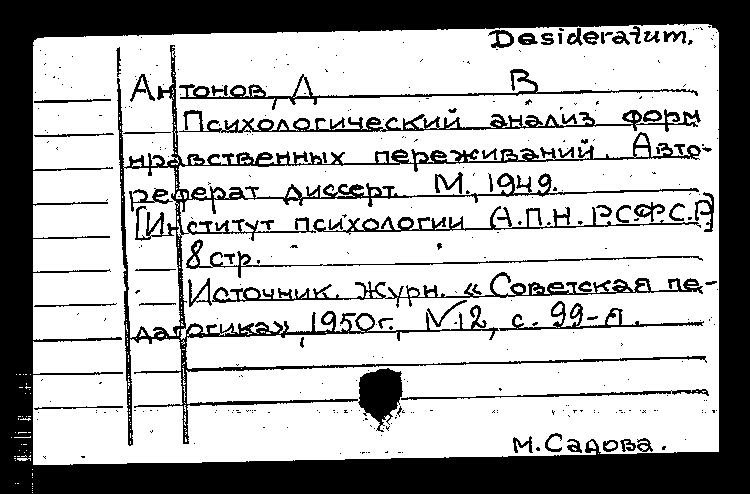 Desideratum.
Антонов, Д В
Психологический анализ форм
нравственных переживаний. Авто-
реферат диссерт. М., 1949.
[Институт психологии А.П.Н. Р.С.Ф.С.Р.]
8 стр.
Источник. Журн. «Советская пе-
дагогика», 1950г., №12, с. 99-я.
М.Садова.